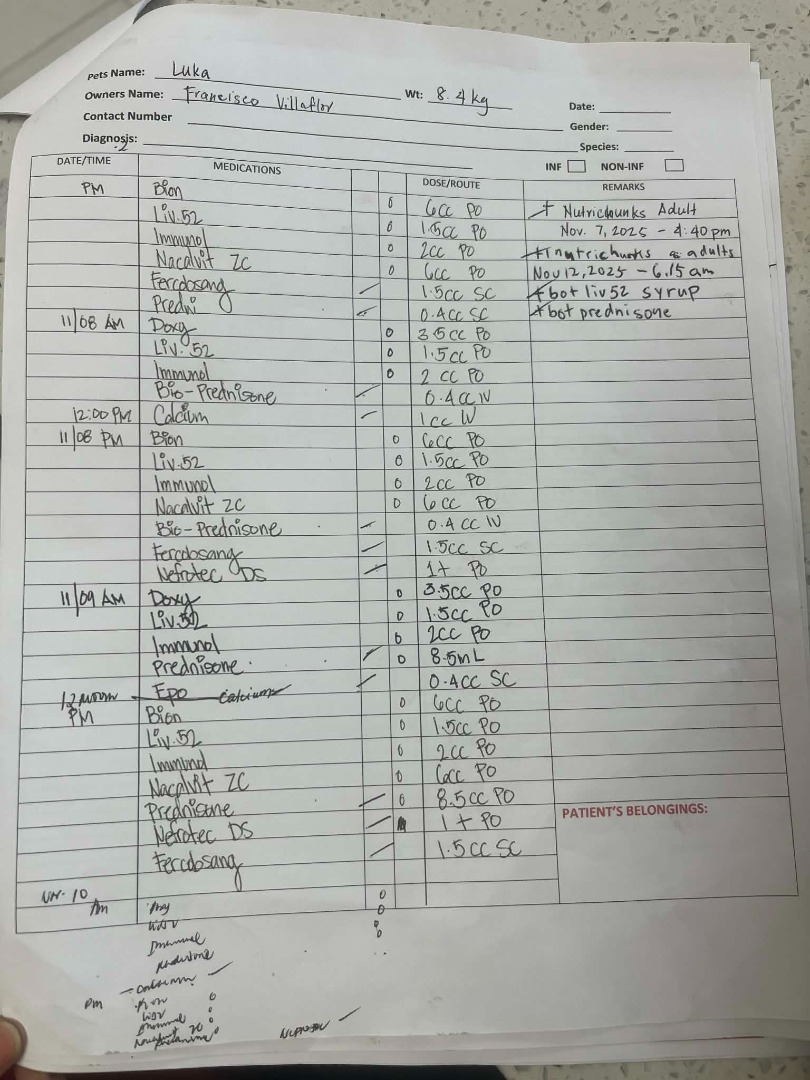 Pets Name: Luka
Owners Name: Francisco Villaflor Wt: 8.4 kg Date:
Contact Number Gender:
Diagnosis: Species:
INF NON-INF
DATE/TIME MEDICATIONS DOSE/ROUTE REMARKS
PM Bion 0 6cc PO + Nutrichunks Adult
Liv.52 0 1.5cc PO Nov. 7, 2025 - 4:40 pm
Immunol 0 2cc PO +1 nutrichunks adults
Nacalvit ZC 0 6cc PO Nov 12, 2025 - 6:15 am
Fercobsang 1.5cc SC + bot liv52 syrup
Predni 0.4cc SC + bot prednisone
11/08 AM Doxy 0 3.5cc PO
Liv.52 0 1.5cc PO
Immunol 0 2 cc PO
Bio-Prednisone 0.4cc IV
12:00 PM Calcium 1cc IV
11/08 PM Bion 0 6cc PO
Liv.52 0 1.5cc PO
Immunol 0 2cc PO
Nacalvit ZC 0 6cc PO
Bio-Prednisone 0.4 cc IV
Fercobsang 1.5cc SC
Nefrotec DS 1t PO
11/09 AM Doxy 0 3.5cc PO
Liv.52 0 1.5cc PO
Immunol 0 2cc PO
Prednisone 0 8.5mL
12noon Epo calcium 0.4cc SC
PM Bion 0 6cc PO
Liv.52 0 1.5cc PO
Immunol 0 2cc PO
Nacalvit ZC 0 6cc PO
Prednisone 0 8.5cc PO
Nefrotec DS 1t PO
Fercobsang 1.5cc SC
PATIENT'S BELONGINGS:
10 Am
PM